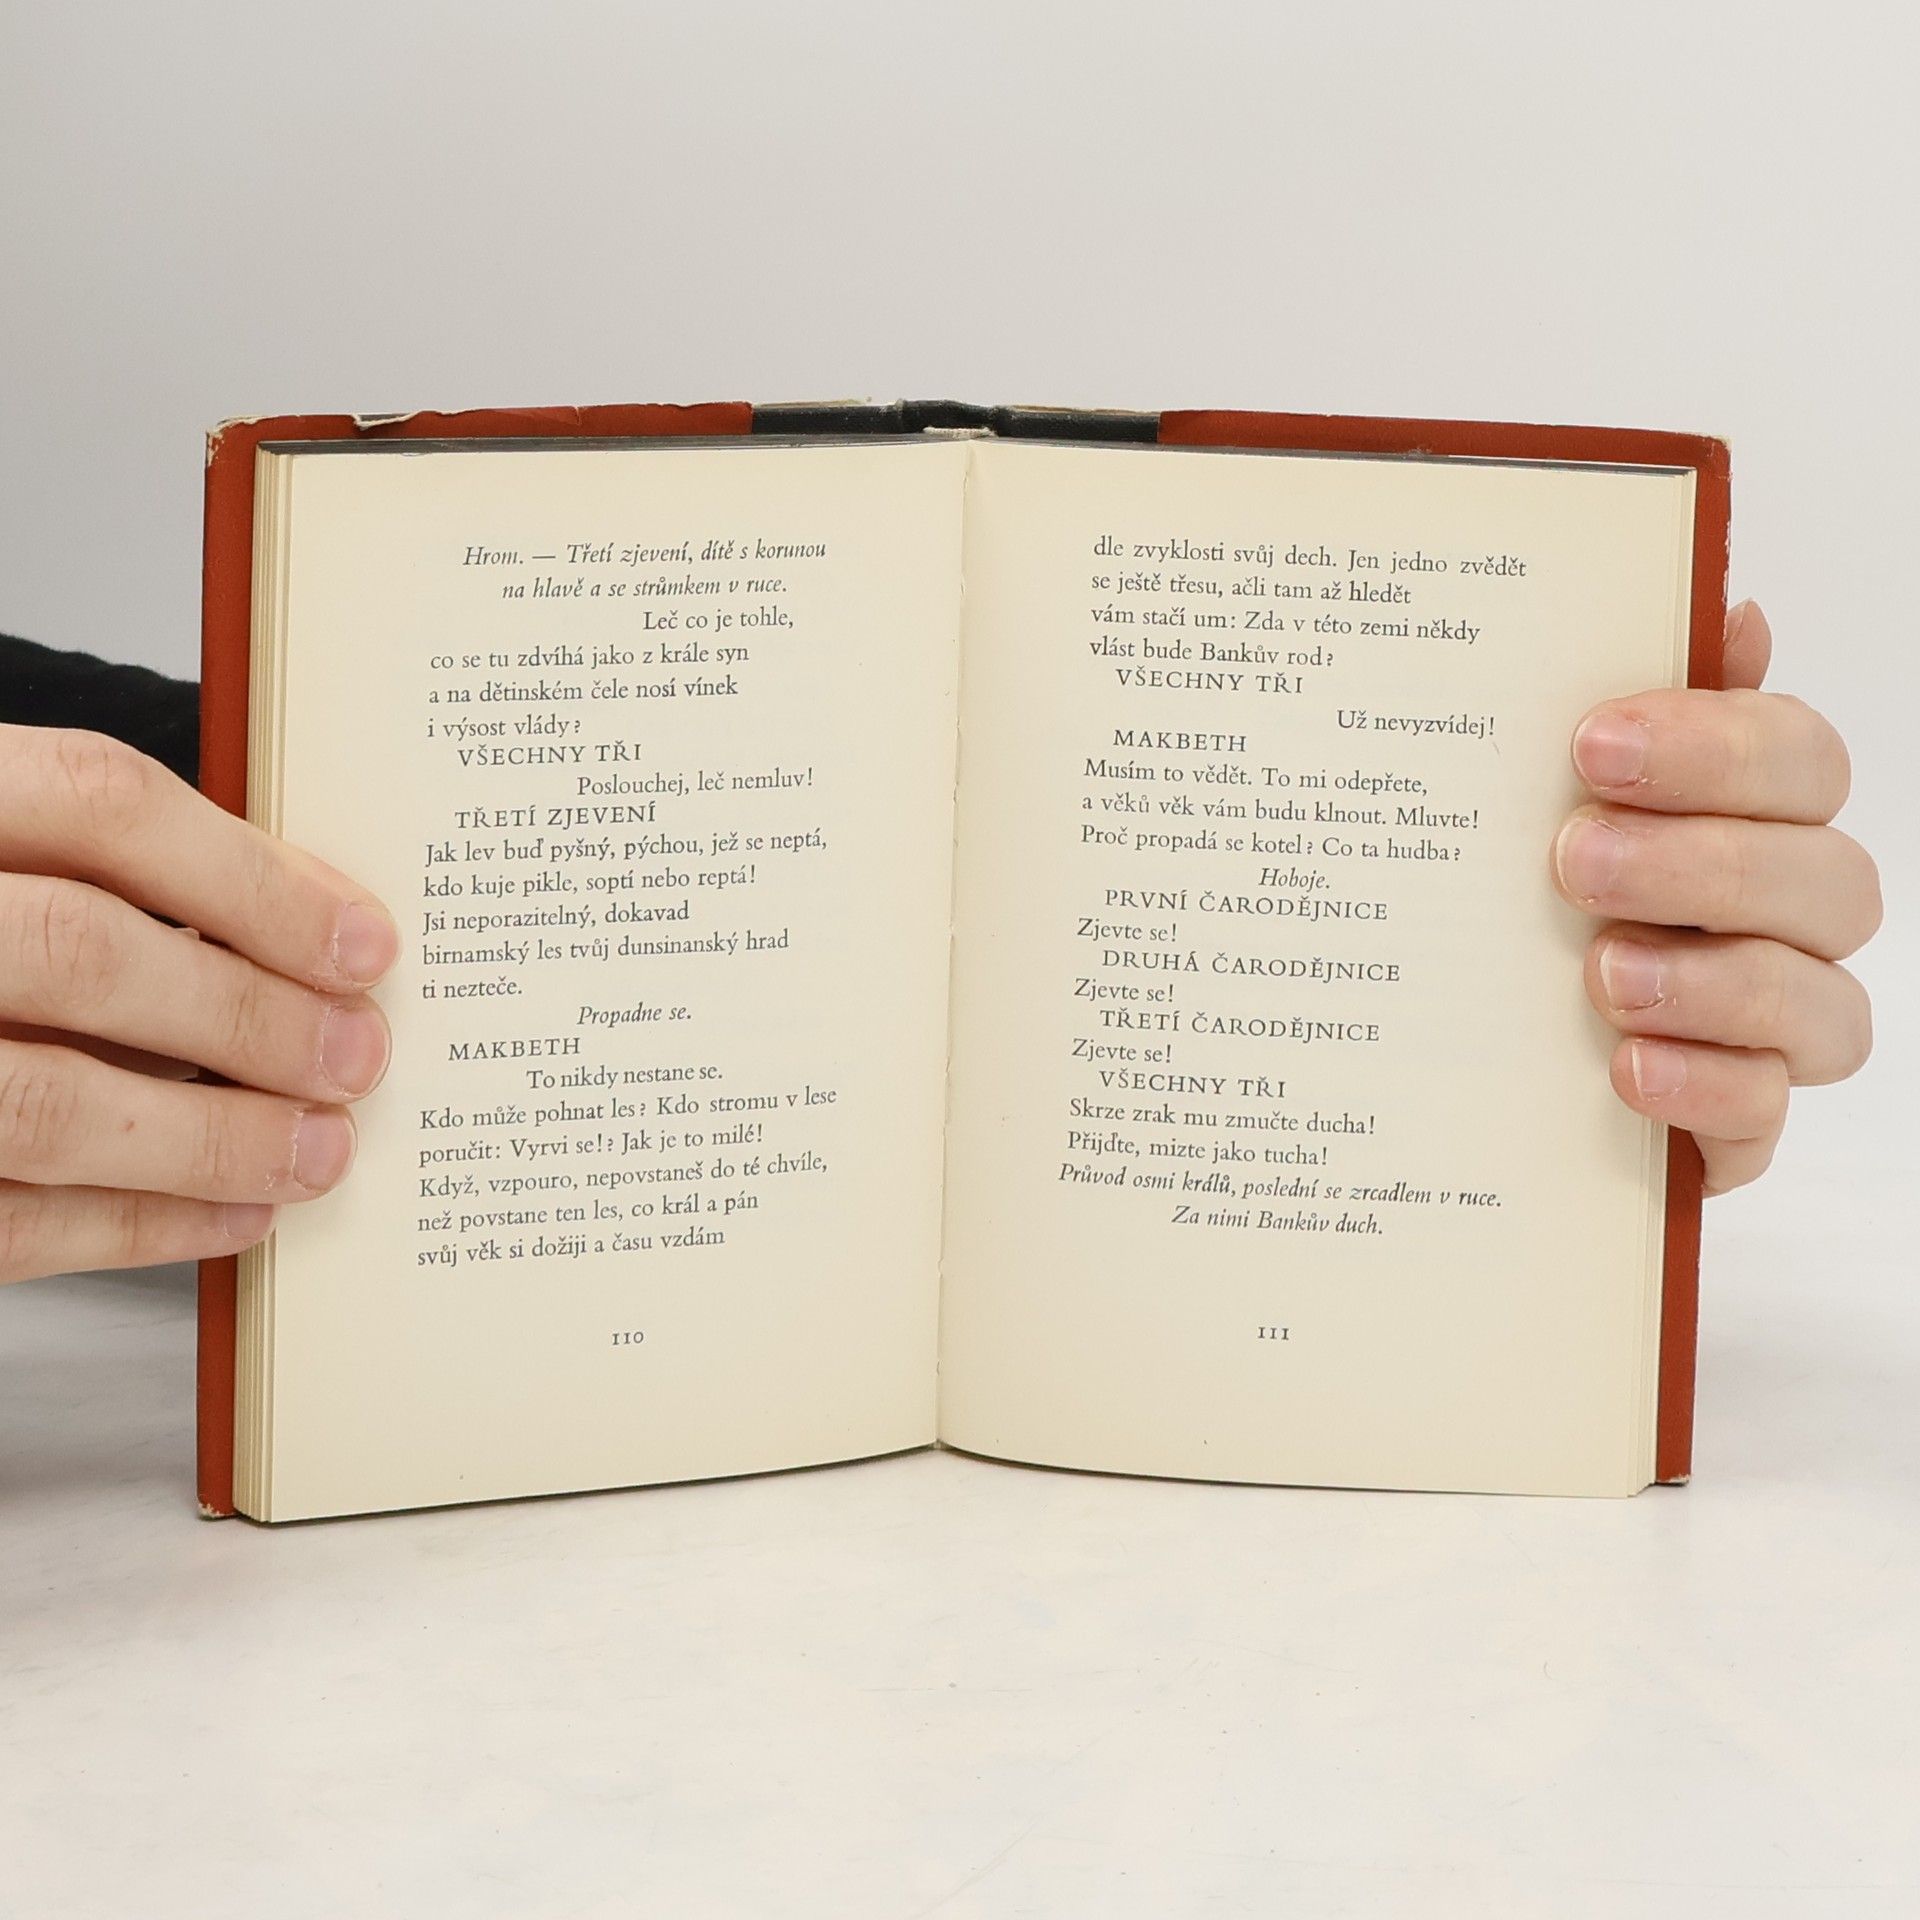 Hrom. — Třetí zjevení, dítě s korunou
na hlavě a se strůmkem v ruce.
Leč co je tohle,
co se tu zdvíhá jako z krále syn
a na dětinském čele nosí vínek
i výsost vlády?
VŠECHNY TŘI
Poslouchej, leč nemluv!
TŘETÍ ZJEVENÍ
Jak lev buď pyšný, pýchou, jež se neptá,
kdo kuje pikle, soptí nebo reptá!
Jsi neporazitelný, dokavad
birnamský les tvůj dunsinanský hrad
ti nezteče.
Propadne se.
MAKBETH
To nikdy nestane se.
Kdo může pohnat les? Kdo stromu v lese
poručit: Vyrvi se!? Jak je to milé!
Když, vzpouro, nepovstaneš do té chvíle,
než povstane ten les, co král a pán
svůj věk si dožiji a času vzdám
110
dle zvyklosti svůj dech. Jen jedno zvědět
se ještě třesu, ačli tam až hledět
vám stačí um: Zda v této zemi někdy
vlást bude Bankův rod?
VŠECHNY TŘI
Už nevyzvídej!
MAKBETH
Musím to vědět. To mi odepřete,
a věků věk vám budu klnout. Mluvte!
Proč propadá se kotel? Co ta hudba?
Hoboje.
PRVNÍ ČARODĚJNICE
Zjevte se!
DRUHÁ ČARODĚJNICE
Zjevte se!
TŘETÍ ČARODĚJNICE
Zjevte se!
VŠECHNY TŘI
Skrze zrak mu zmučte ducha!
Přijďte, mizte jako tucha!
Průvod osmi králů, poslední se zrcadlem v ruce.
Za nimi Bankův duch.
111